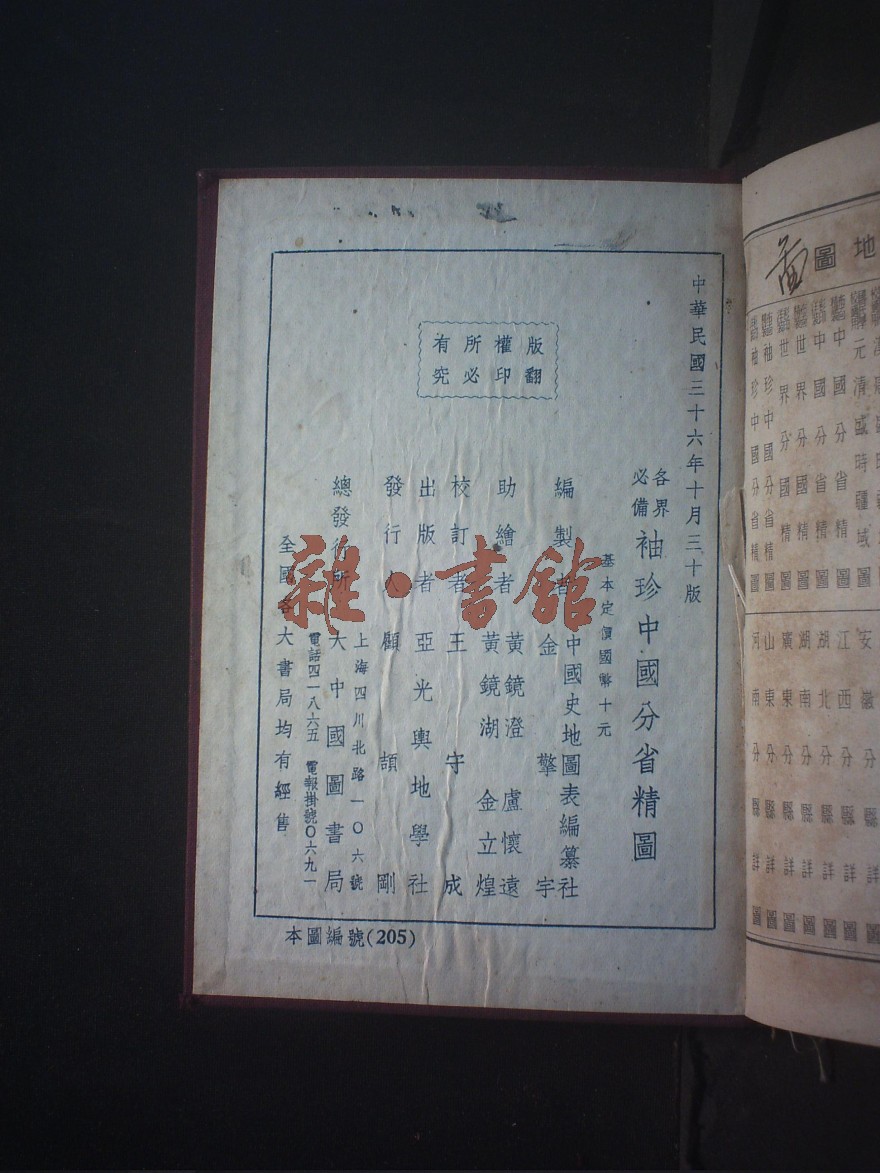 中華民國三十六年十月三十版
各界必備
袖珍中國分省精圖
基本定價國幣十元
版權所有
翻印必究
編製者
中國史地圖表編纂社
金擎宇
助繪者
黃鏡澄 盧懷遠
黃鏡湖 金立煌
校訂者 王守成
出版者 亞光輿地學社
發行人 顧頡剛
總發行所
上海四川北路一〇六號
大中國圖書局
電話四一八六五 電報掛號〇六九一
全國各大書局均有經售
本圖編號(205)
雜·書館
地圖
安徽分縣詳圖
江西分縣詳圖
湖北分縣詳圖
湖南分縣詳圖
廣東分縣詳圖
山東分縣詳圖
河南分縣詳圖